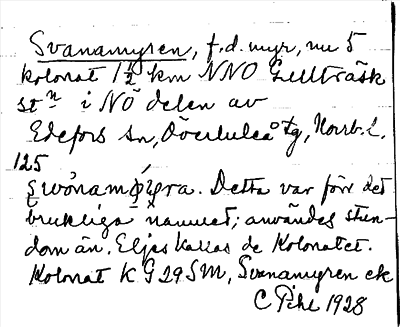 Svanamyren, f.d. myr, nu 5
kolonat 1½ km NNO Gullträsk
stn i NÖ delen av
Edefors sn, Överluleå tg, Norrb. l.
125
Detta var förr det
brukliga namnet; användes stun-
dom än. Eljes kallas de Kolonatet.
Kolonat KG 29 SM, Svanamyren ek
C Pihl 1928